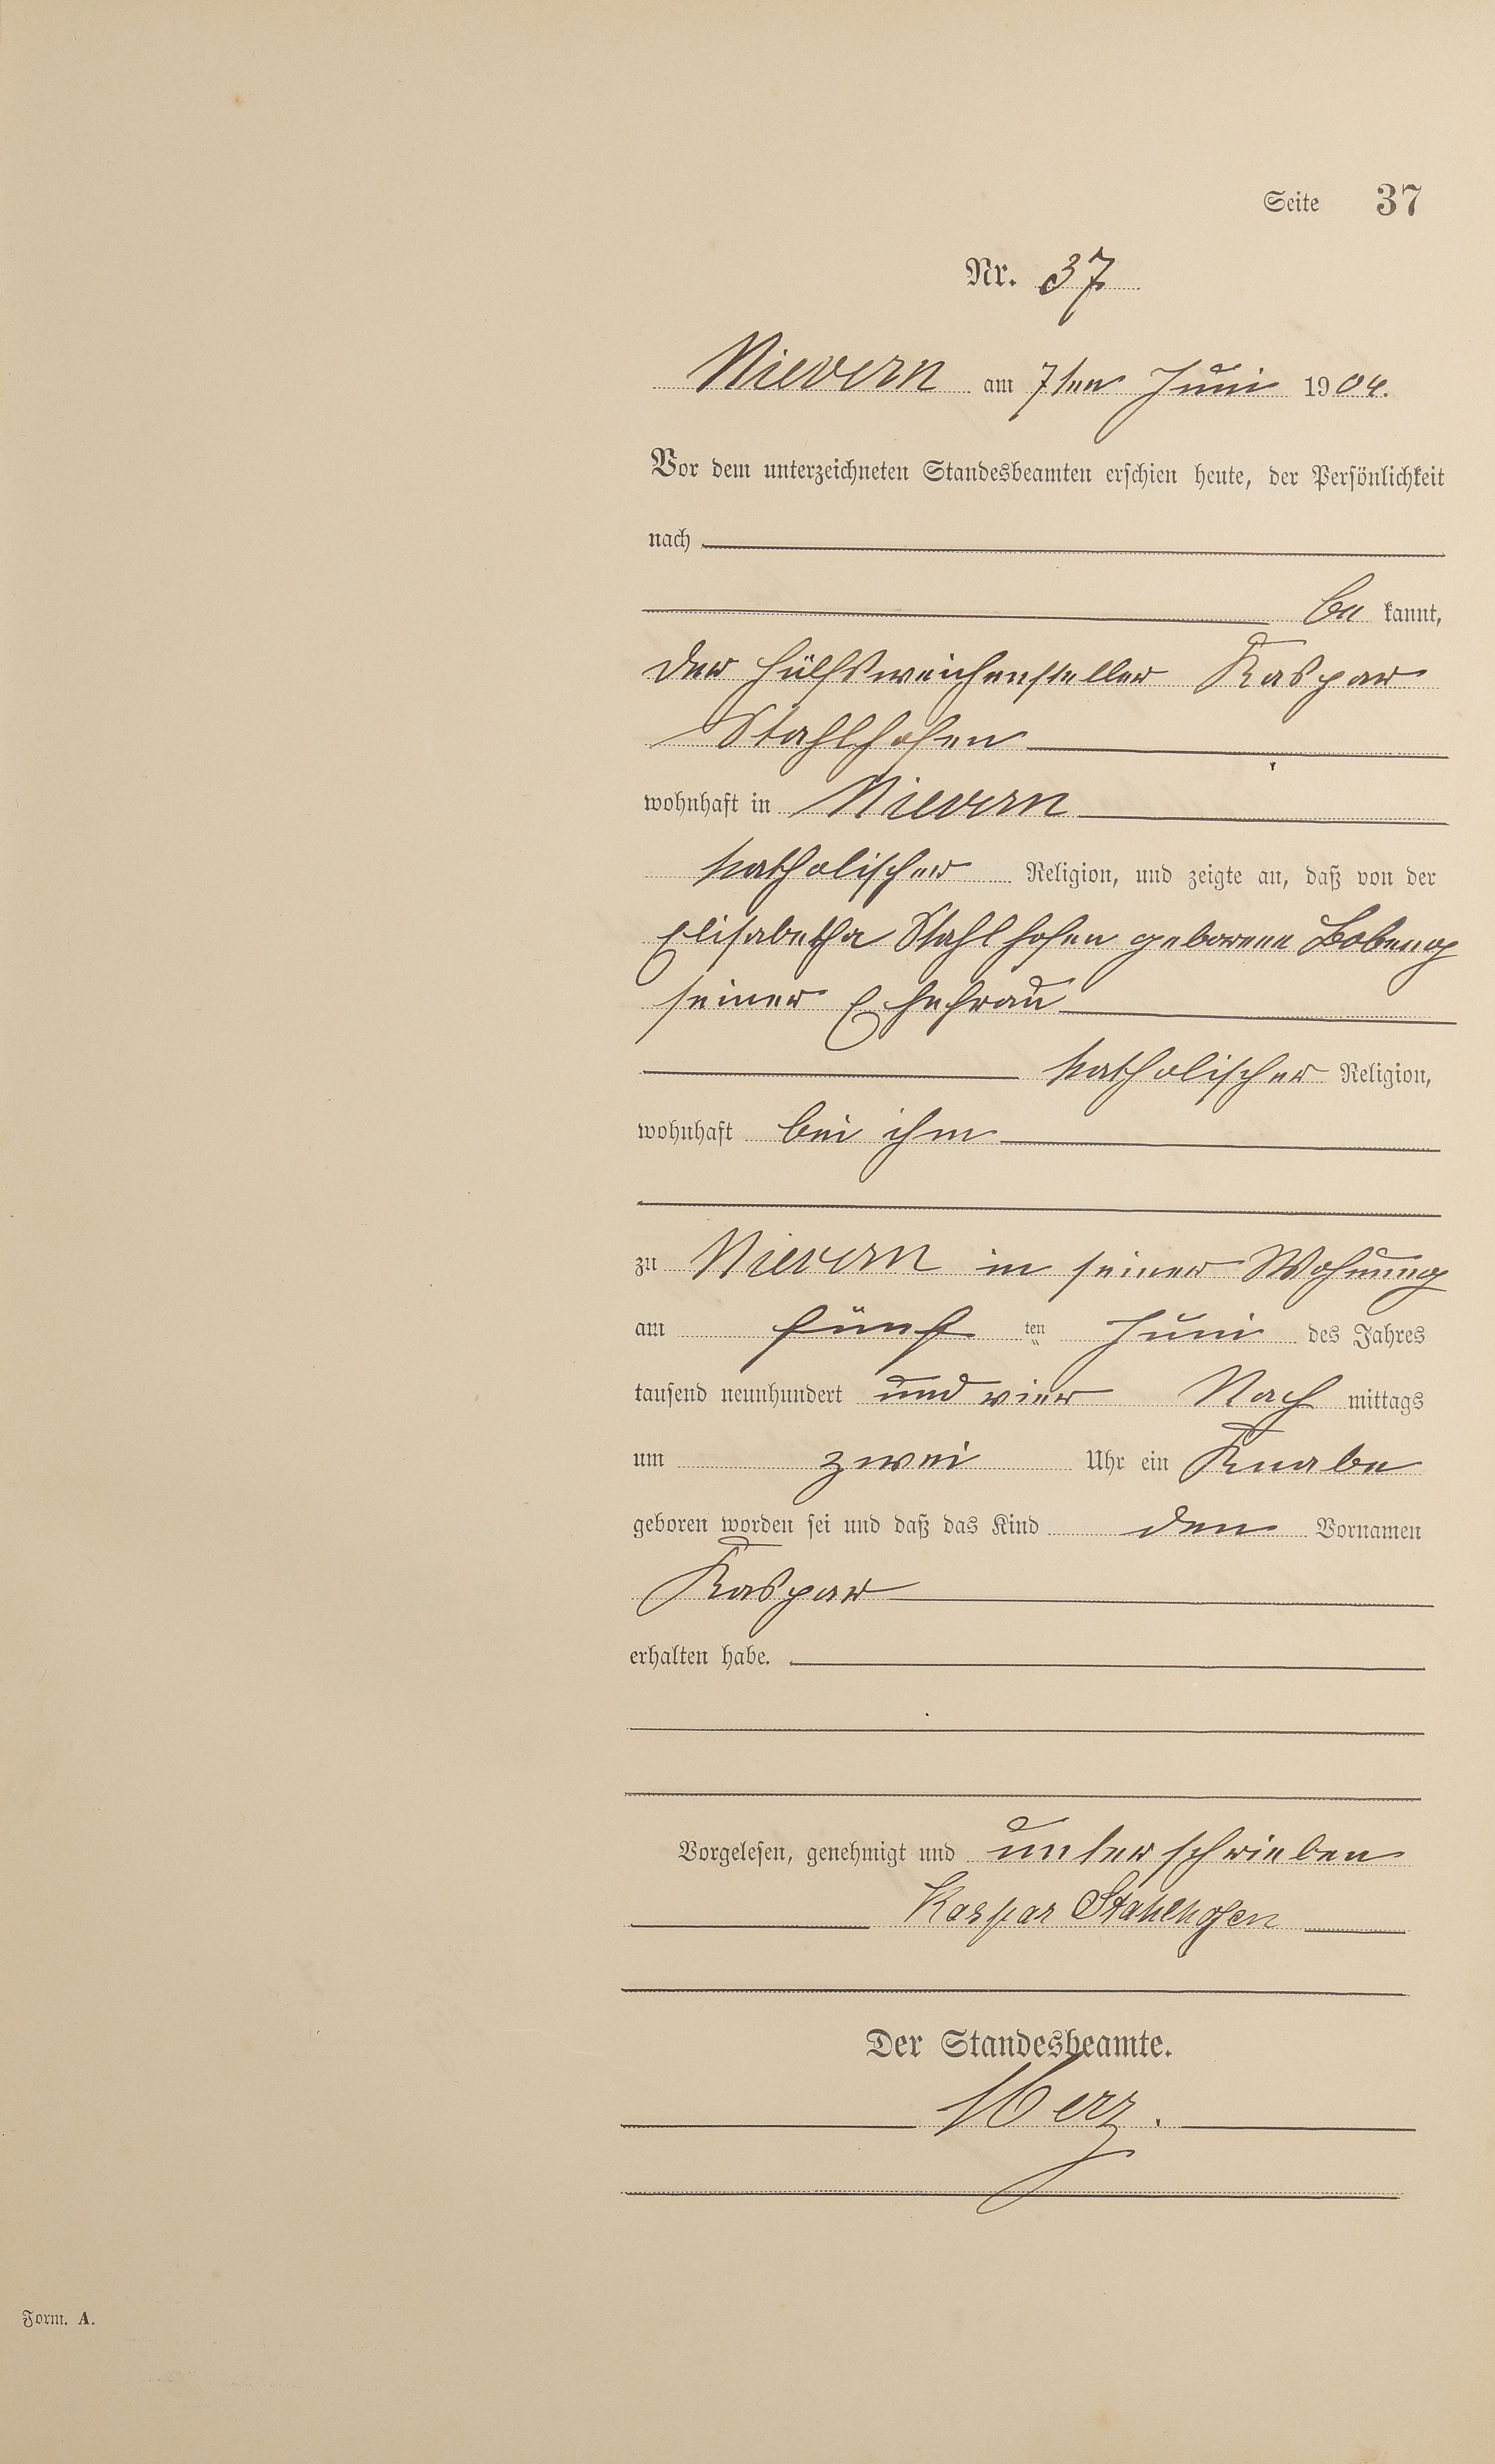 Seite 37
Nr. 37
Nievern am 7ten Juni 1904.
Vor dem unterzeichneten Standesbeamten erschien heute, der Persönlichkeit
nach
be kannt,
der Hülfsweichensteller Kaspar
Stahlhofen
wohnhaft in Nievern
katholischer Religion, und zeigte an, daß von der
Elisabetha Stahlhofen geborene
seiner Ehefrau
katholischer Religion,
wohnhaft bei ihm
zu Nievern in seiner Wohnung
am fünf ten Juni des Jahres
tausend neunhundert und vier Nach mittags
um zwei Uhr ein Knabe
geboren worden sei und daß das Kind den Vornamen
Kaspar
erhalten habe.
Vorgelesen, genehmigt und unterschrieben
Kaspar Stahlhofen
Der Standesbeamte.
Merz.
Form. A.